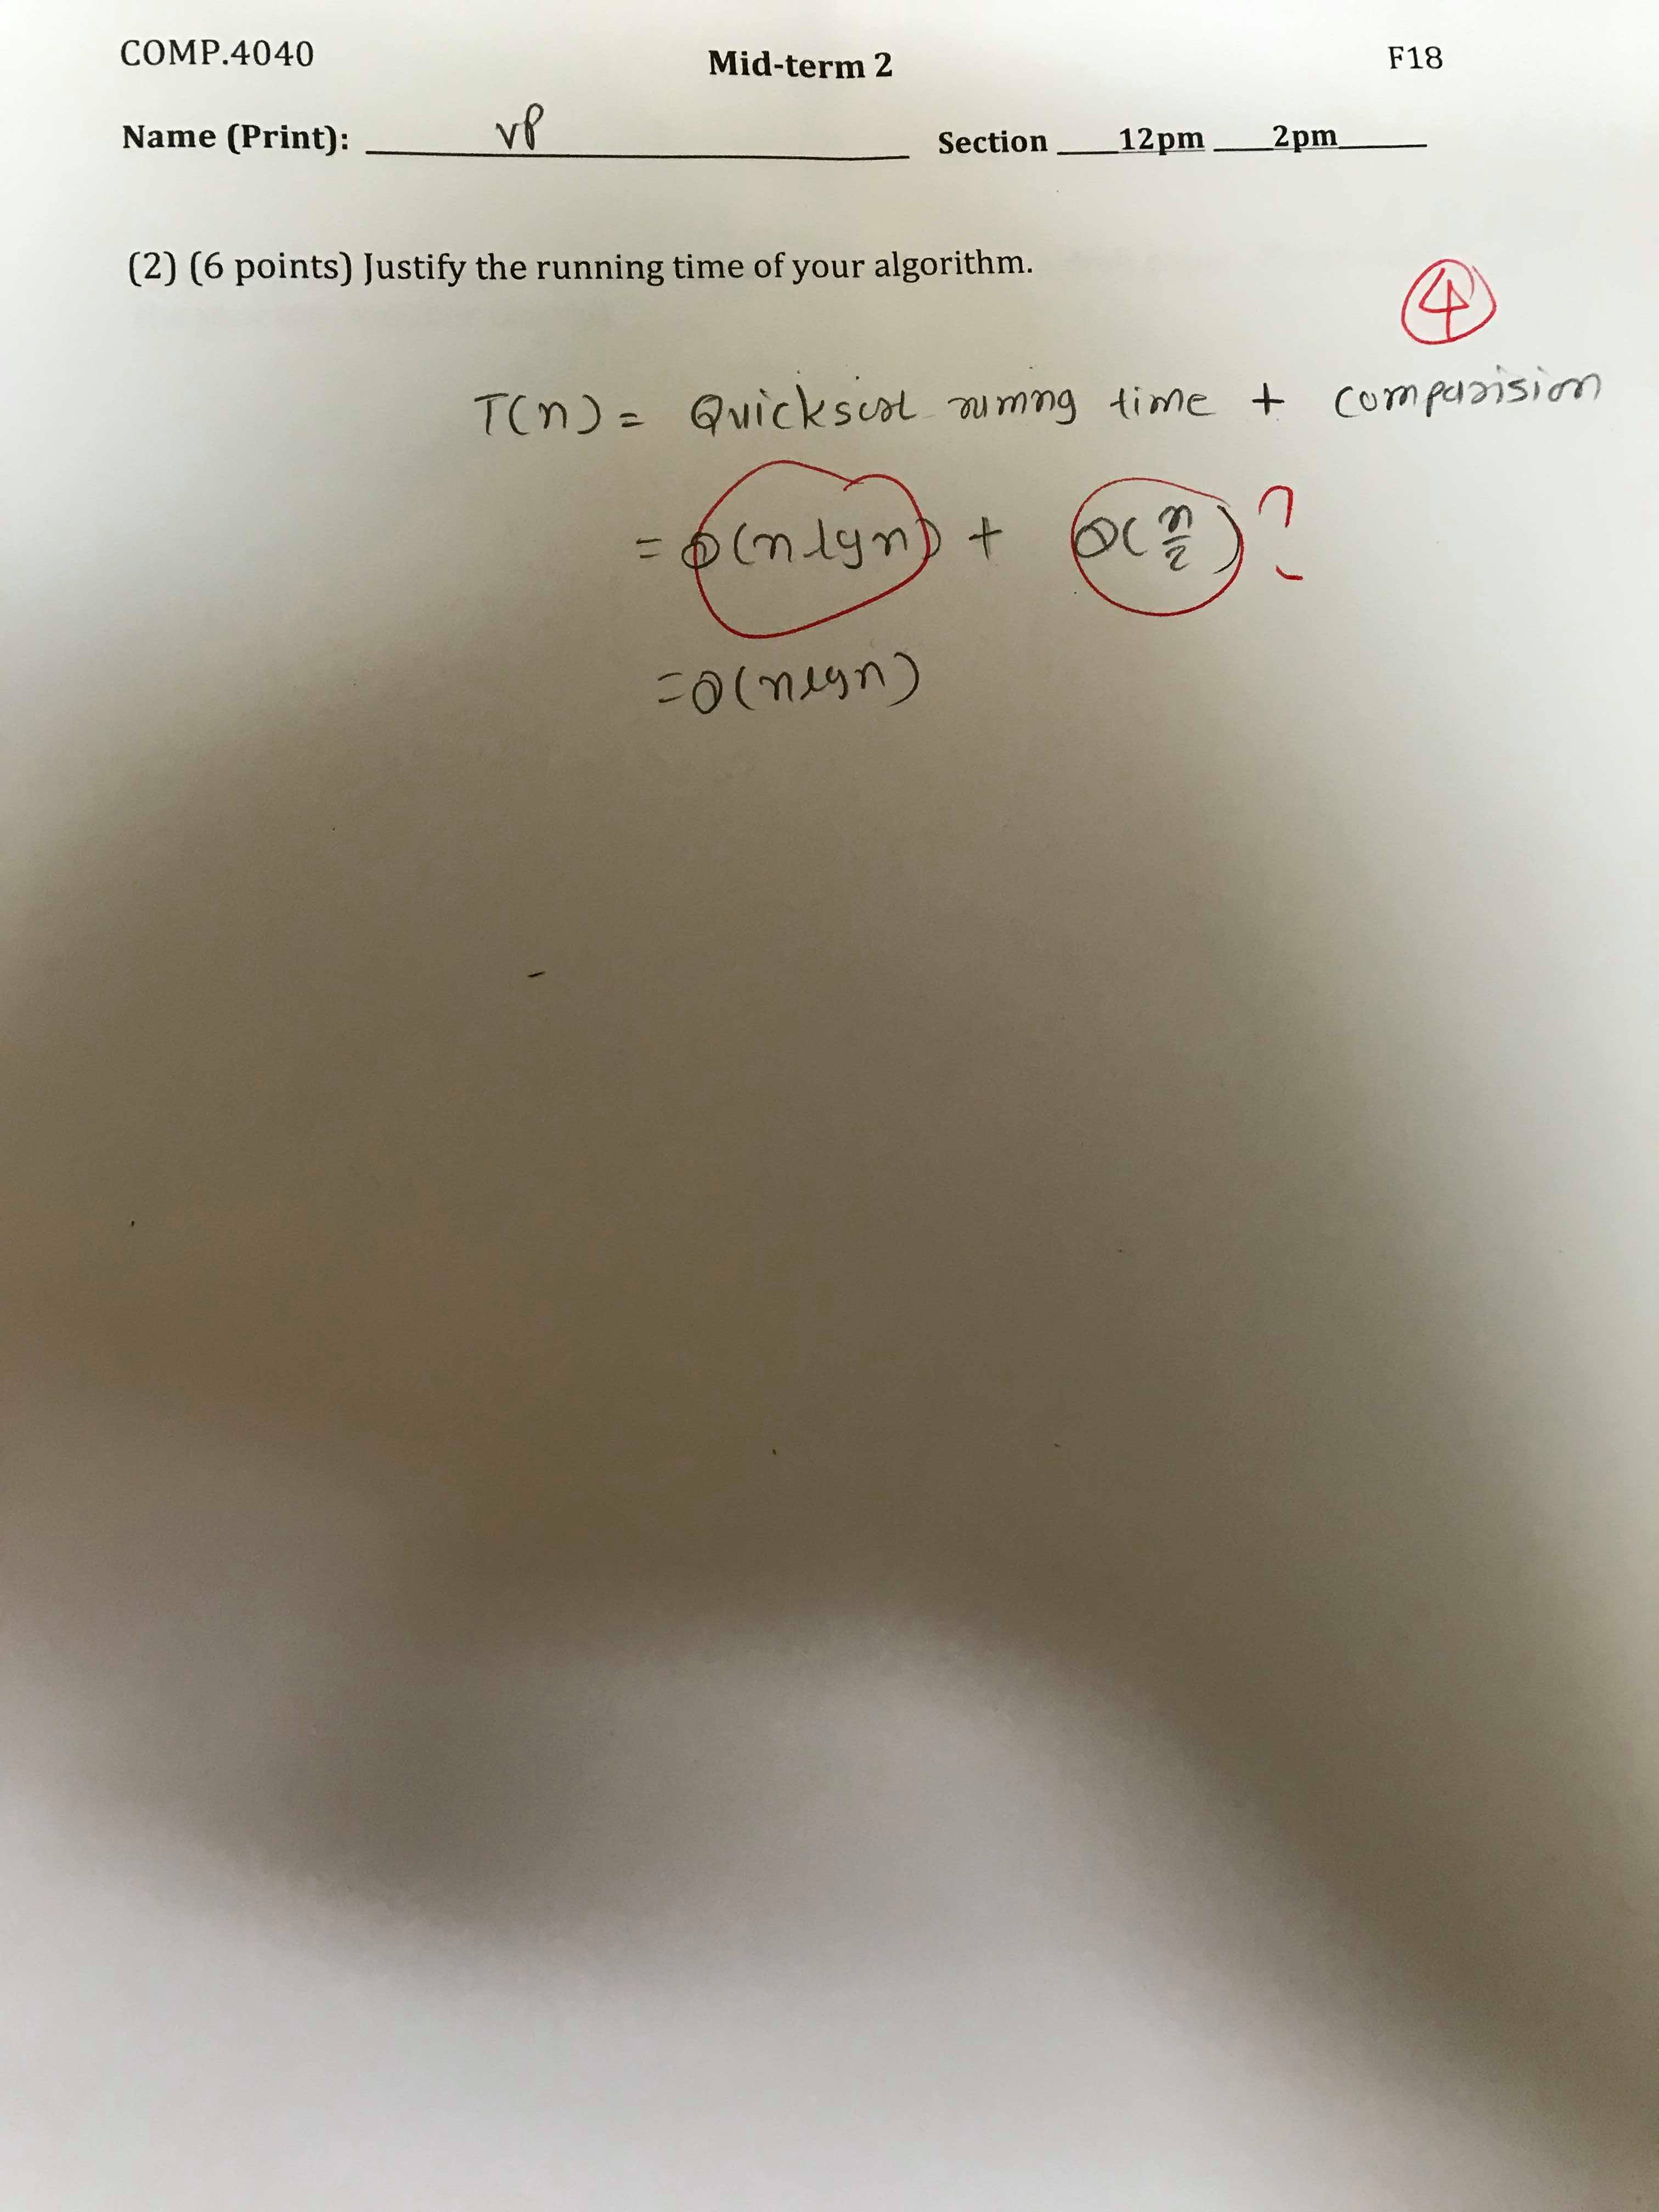 COMP.4040 Mid-term 2 F18
Name (Print): VP Section ___12pm ___2pm___
(2) (6 points) Justify the running time of your algorithm.
4
T(n) = Quicksort running time + comparision
= Θ(n lg n) + Θ(n/2) ?
= Θ(n lg n)